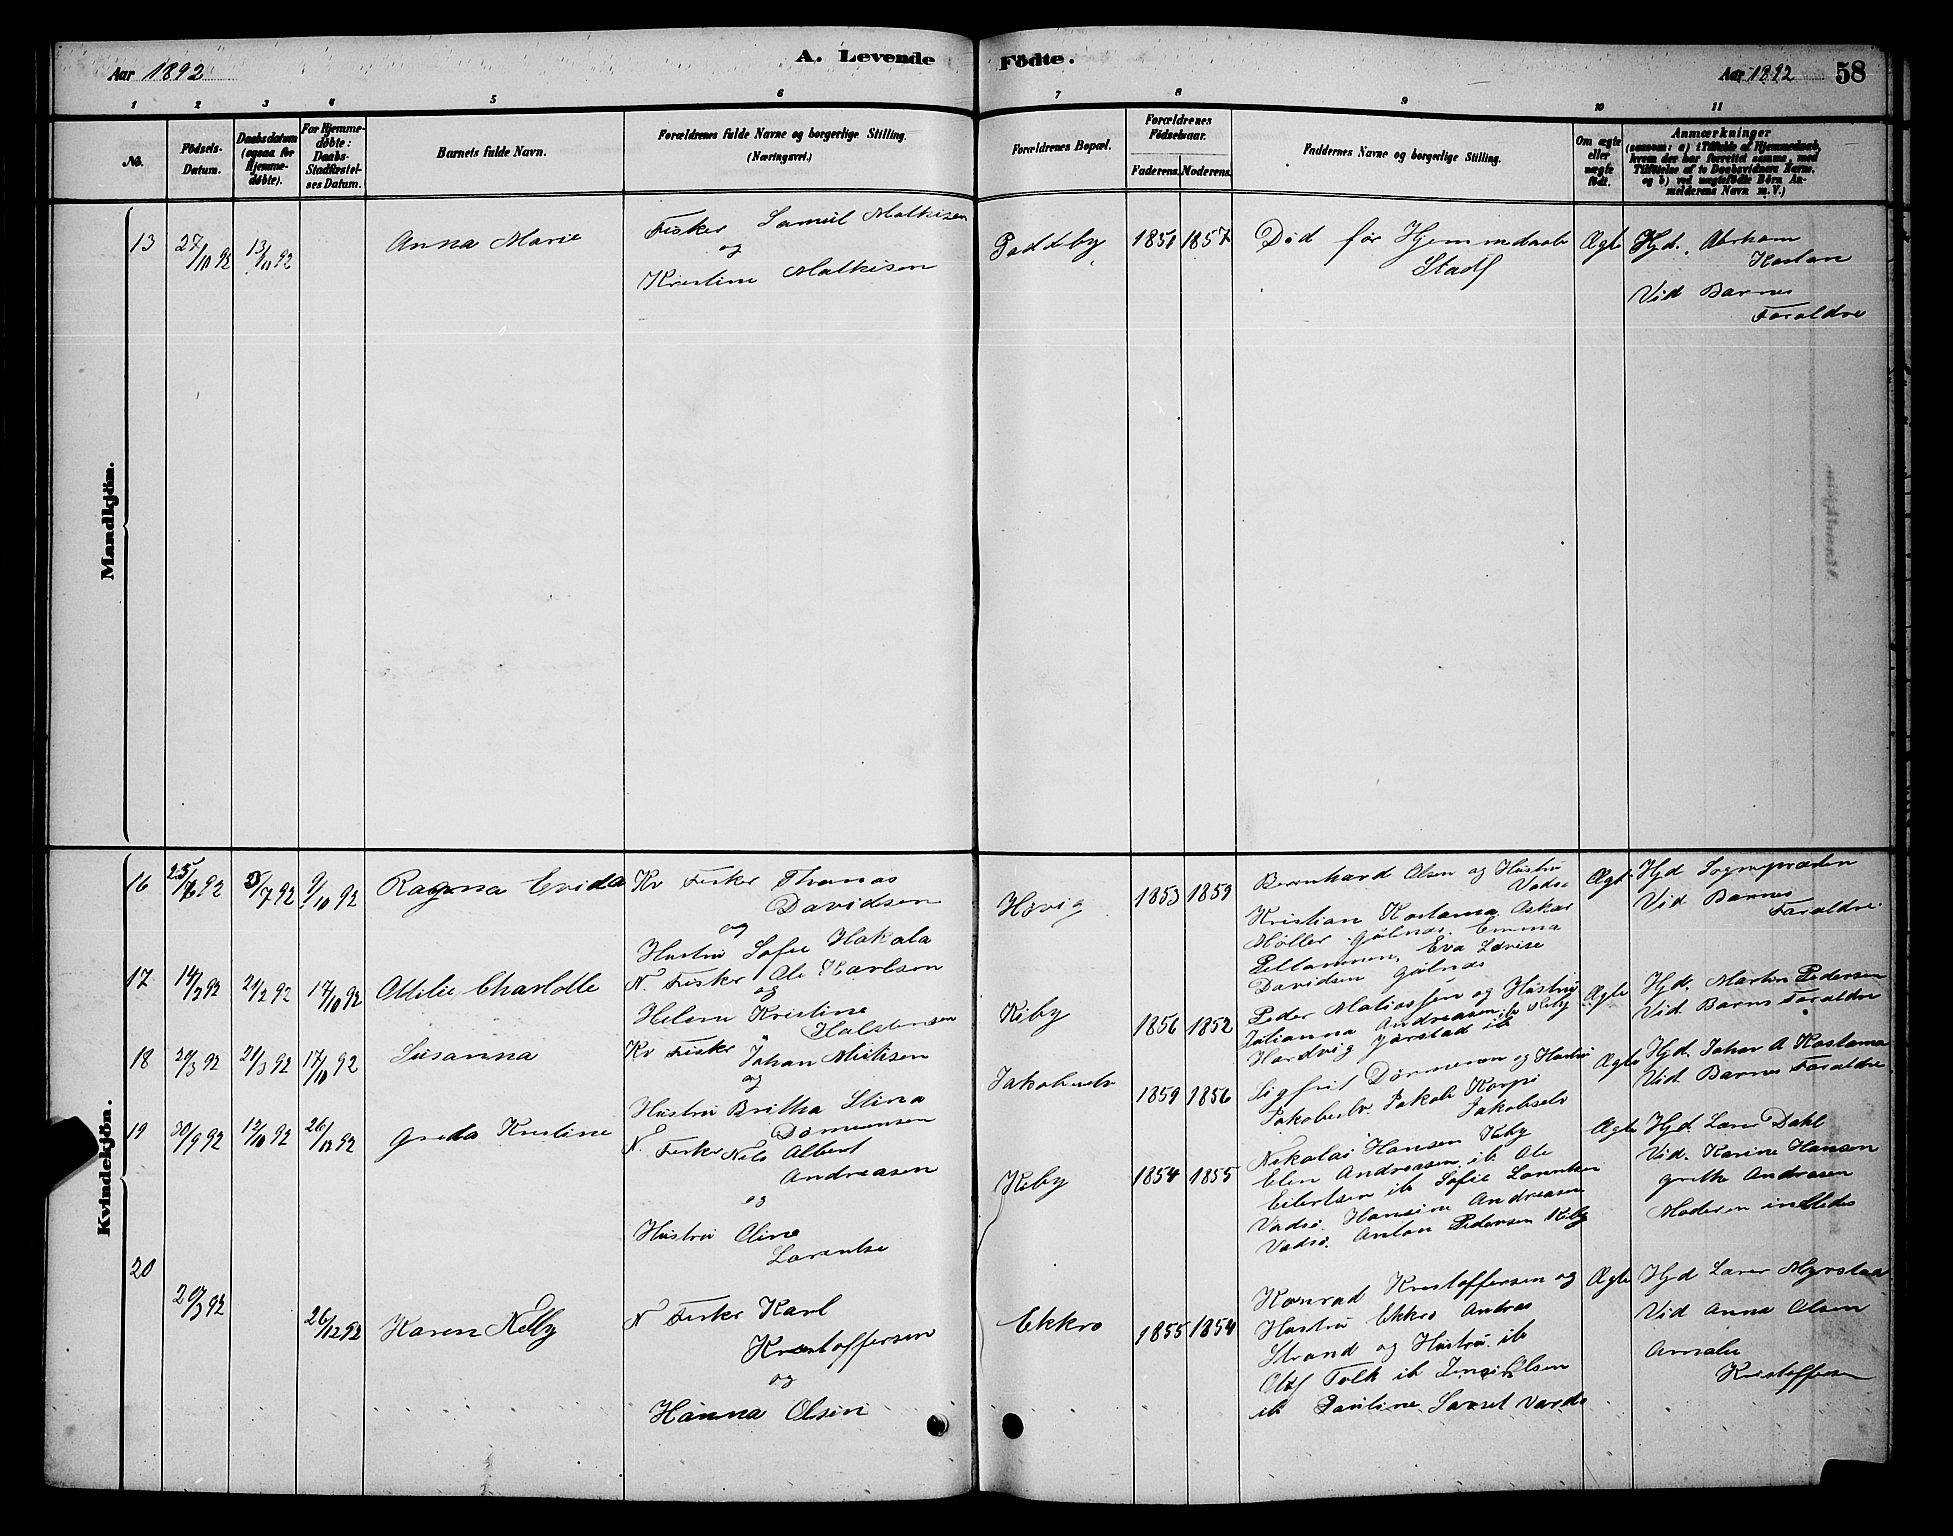 Aar 1892
A. Levende
Födte.
Aar 1892
58
1
2
3
4
5
6
7
8
9
10
11
No.
Födsels-
Datum.
Daabsdatum
(ogsaa for
Hjemme-
døbte).
For Hjemme-
døbte:
Daabs-
Stadfæstel-
ses Datum.
Barnets fulde Navn.
Forældrenes fulde Navne og borgerlige Stilling.
(Næringsvei.)
Forældrenes Bopæl.
Forældrenes
Födselsaar.
Faderens.
Moderens.
Faddernes Navne og borgerlige Stilling.
Om ægte
eller
uægte
født.
Anmærkninger
(saasom: a) i Tilfælde af Hjemmedaab,
hvem der har forrettet samme, med
Tilföielse af to Daabsvidners Navne,
og b) ved uægtefødte Børn An-
melderens Navn m. V.)
Mandkjön.
13
27/10 92
13/11 92
Anna Marie
Fisker Samuel Mathisen
og
Kristine Mathisen
Paddeby
1851
1857
Død før Hjemmdaab
Stadf
Ægte
Hjd. Abraham
Kostam
Vid Barnes
Foraldre
Kvindekjön.
16
25/6 92
3/7 92
9/10 92
Ragna Evida
Kv Fisker Thomas
Davidsen
og
Hustru Sofie Hakala
Høvig
1853
1859
Bernhard Olsen og Hustru
Vadsø
Kristian Kostama Oskar
Møller Golnæs. Emma
Pettamen, Eva Lovise
Davidsen Golnæs
Ægte
Hjd Sognepræsten
Vid Barnes
Foraldre
17
14/2 92
21/2 92
17/10 92
Otilie Charlotte
N. Fisker Ole Karlsen
og
Helene Kristine
Halstensen
Kiby
1856
1852
Peder Matiassen og Hustru
Julianna Andreasen ib Kiby
Hardvig Jarstad ib
Ægte
Hjd. Martin Pedersen
Vid Barns Foraldre
18
20/3 92
21/3 92
17/10 92
Susanna
Kv Fisker Johan Matisen
og
Hustru Britha Stina
Dommensen
Jakobselv
1859
1856
Sigfrit Dommenen og Hustru
Jakobselv Jakob Korpi
Jakobselv
Ægte
Hjd. Johan A Kostama
Vid. Barnes Foraldre
19
30/9 92
12/10 92
26/12 92
Greda Kristine
N. Fisker Nels Albert
Andreasen
og
Hustru Oline
Larentse
Kiby
1854
1855
Nikolai Hansen Kiby
Elen Andreassen ib Ole
Eilertsen ib Sofie Larentsen
Vadsø. Hansine Andreasen
Vadsø. Anton Pedersen Kiby
Ægte
Hjd. Lærer Dahl
Vid. Karine Hansen
grethe Andreasen
Moderen indledes
20
20/3 92
26/12 92
Karen Nelly
N Fisker Karl
Kristoffersen
og
Hanna Olsen
Ekkro
1855
1854
Konrad Kristoffersen og
Hustru Ekkro Andras
Strand og Hustru ib
Olaf Falk ib Olsen
ib Pauline Vardø
Ægte
Hjd Lærer Myrstad
Vid Anna Olsen
Amalie
Kristoffersen